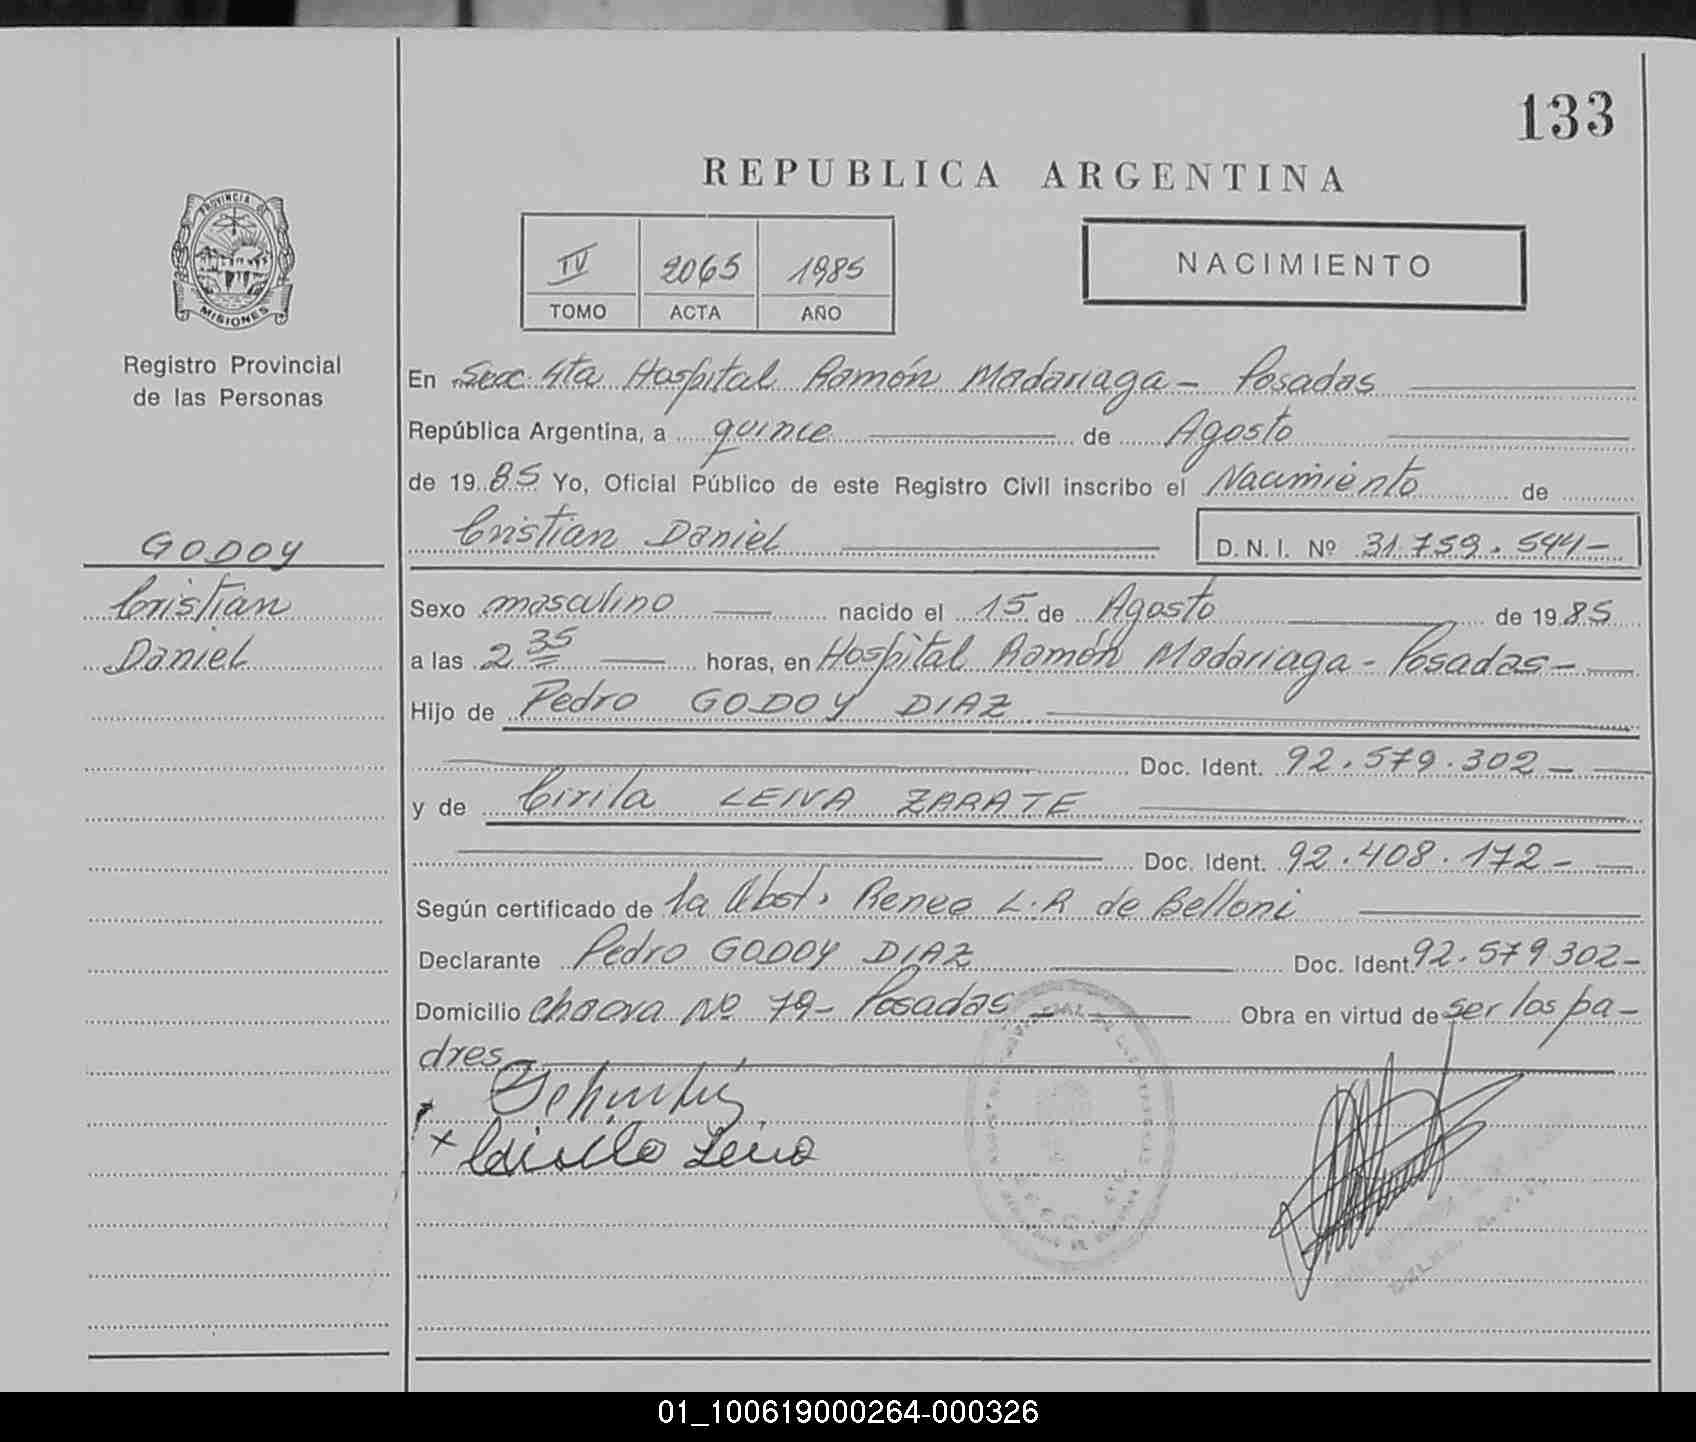 133
REPUBLICA ARGENTINA
PROVINCIA DE
MISIONES
Registro Provincial
de las Personas
IV 2065 1985
TOMO ACTA AÑO
NACIMIENTO
En Secc. 4ta Hospital Ramón Madariaga - Posadas
República Argentina, a quince de Agosto
de 1985 Yo, Oficial Público de este Registro Civil inscribo el Nacimiento de
Cristian Daniel D.N.I. Nº 31.759.544-
GODOY
Cristian
Daniel
Sexo masculino nacido el 15 de Agosto de 1985
a las 2 35 horas, en Hospital Ramón Madariaga - Posadas -
Hijo de Pedro GODOY DIAZ
Doc. Ident. 92.579.302 -
y de Cirila LEIVA ZARATE
Doc. Ident. 92.408.172 -
Según certificado de la Obst. Renee L.R de Belloni
Declarante Pedro GODOY DIAZ Doc. Ident. 92.579.302 -
Domicilio Chacra Nº 79 - Posadas - Obra en virtud de ser los pa-
dres
x Leiva
01_100619000264-000326